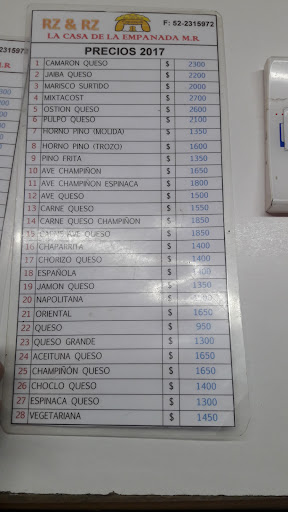 RZ & RZ F: 52-2315972
LA CASA DE LA EMPANADA M.R
PRECIOS 2017
1 CAMARON QUESO $ 2300
2 JAIBA QUESO $ 2200
3 MARISCO SURTIDO $ 2000
4 MIXTACOST $ 2700
5 OSTION QUESO $ 2600
6 PULPO QUESO $ 2100
7 HORNO PINO (MOLIDA) $ 1350
8 HORNO PINO (TROZO) $ 1600
9 PINO FRITA $ 1350
10 AVE CHAMPIÑON $ 1650
11 AVE CHAMPIÑON ESPINACA $ 1800
12 AVE QUESO $ 1500
13 CARNE QUESO $ 1550
14 CARNE QUESO CHAMPIÑON $ 1850
15 CARNE AVE QUESO $ 1850
16 CHAPARRITA $ 1400
17 CHORIZO QUESO $ 1400
18 ESPAÑOLA $ 1400
19 JAMON QUESO $ 1350
20 NAPOLITANA $
21 ORIENTAL $ 1650
22 QUESO $ 950
23 QUESO GRANDE $ 1300
24 ACEITUNA QUESO $ 1650
25 CHAMPIÑÓN QUESO $ 1650
26 CHOCLO QUESO $ 1400
27 ESPINACA QUESO $ 1300
28 VEGETARIANA $ 1450
2315972
M.R